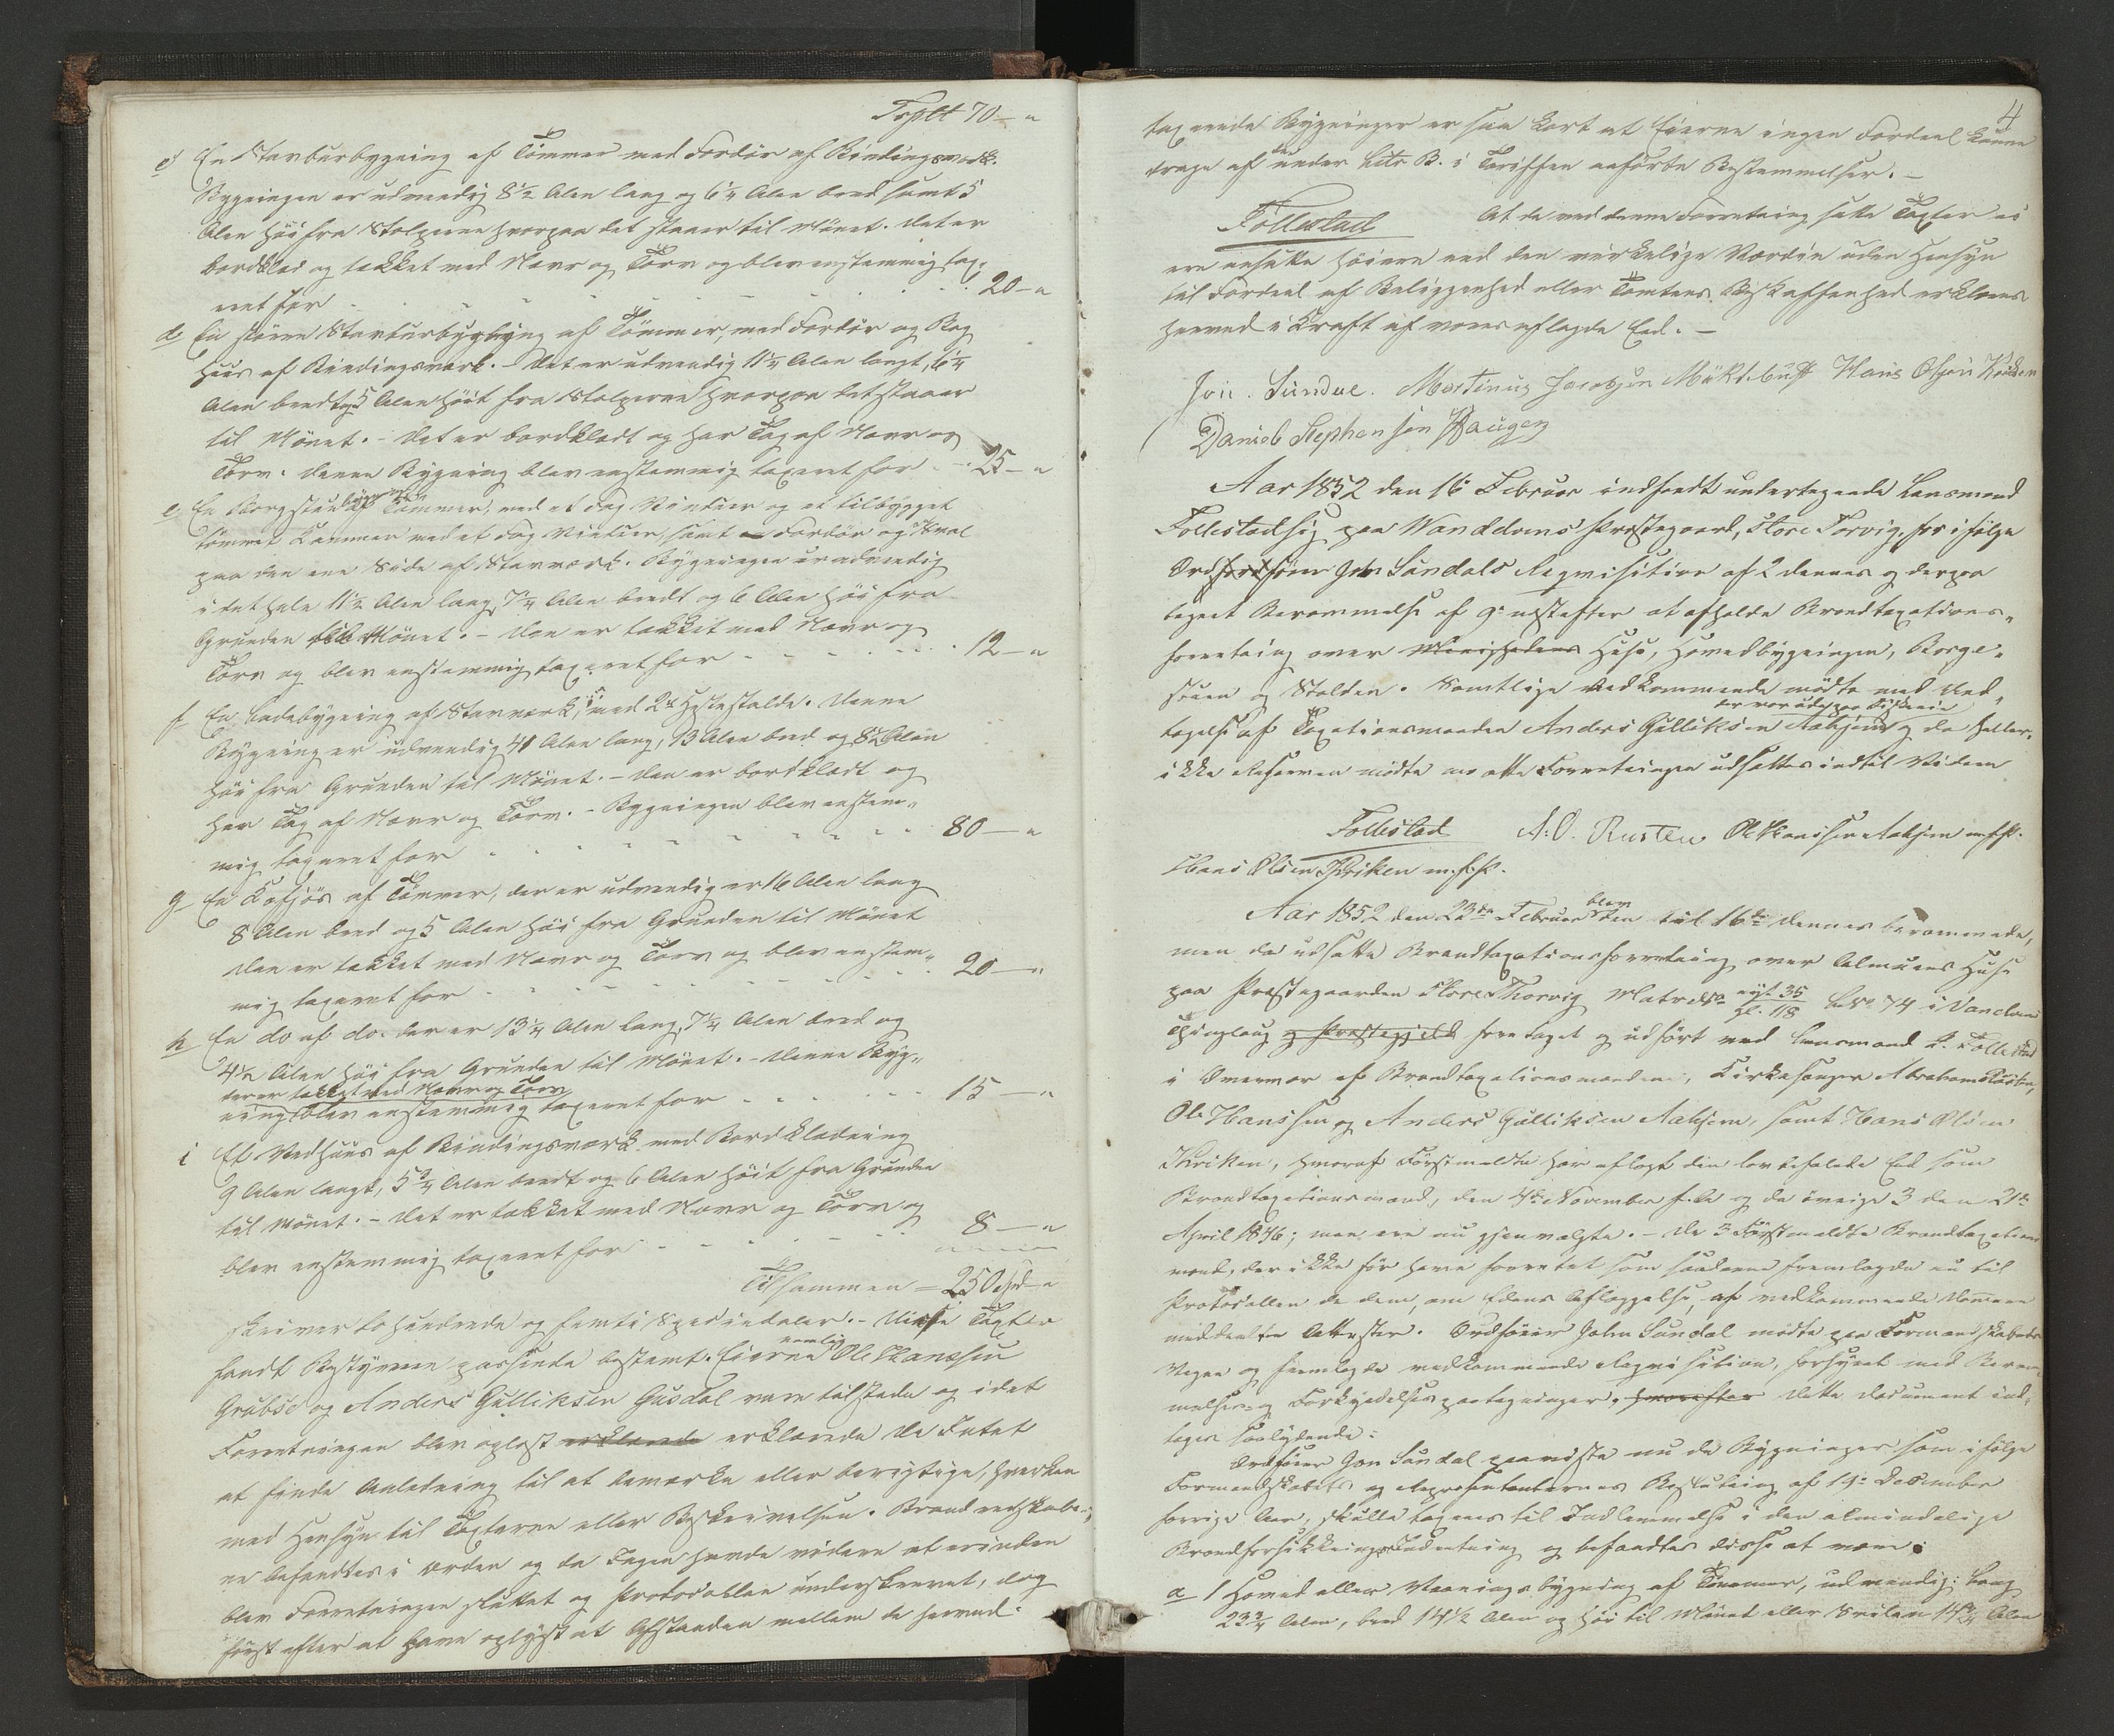 Transpt 70 — "
c En Stavbursbygning af Tømmer med Fordør af Bindingsværk.
Bygningen er udvendig 8 1/2 Alen lang og 6 1/4 Alen bred samt 5
Alen høi fra Stolperne hvorpaa det staaer til Mønet. Det er
bordklædt og tækket med Næver og Tørv og blev enstemmig tax-
eret for 20 — "
d En større Stavbursbygning af Tømmer, med Fordør og Bag
Huus af Bindingsværk. – Det er udvendig 11 1/4 Alen langt, 6 1/4
Alen bredt og 5 Alen høit fra Stolperne hvorpaa det staaer
til Mønet. – Det er bordklædt og har Tag af Næver og
Tørv. Denne Bygning blev enstemmig taxeret for 25 — "
e En Borgstuebygning af Tømmer, med et Fag Vinduer og et tilbygget
Tømmer Kammer med et Fag Vinduer samt Fordør og Sval
paa den ene Side af Stavværk. Bygningen er udvendig
i det hele 11 1/2 Alen lang, 7 1/4 Alen bredt og 6 Alen høi fra
Grunden til Mønet. – Den er tækket med Næver og
Tørv og blev enstemmig taxeret for 12 — "
f En Ladebygning af Stavværk, med 2de Hestestalde. Denne
Bygning er udvendig 41 Alen lang, 13 Alen bred og 8 1/2 Alen
høi fra Grunden til Mønet. – Den er bordklædt og
har Tag af Næver og Tørv. – Bygningen blev enstem-
mig taxeret for 80 — "
g En Fæfjøs af Tømmer, der er udvendig er 16 Alen lang
8 Alen bred og 5 Alen høi fra Grunden til Mønet
Den er tækket med Næver og Tørv og blev enstem-
mig taxeret for 20 — "
h En do af do. der er 13 1/4 Alen lang, 7 1/4 Alen bred og
4 1/2 Alen høi fra Grunden til Mønet. – Denne Byg-
der er tækket med Næver og Tørv
ning blev enstemmig taxeret for 15 — "
i Et Vedhuus af Bindingsværk med Bordklædning
9 Alen langt, 5 3/4 Alen bredt og 6 Alen høit fra Grunden
til Mønet. – Det er tækket med Næver og Tørv og
blev enstemmig taxeret for 8 — "
Tilsammen = 250 Spd — "
skriver to hundrede og femti Speciedaler. – Disse Taxter
fandt Bestyreren passende bestemt. Eierne nemlig Ole Hanssen
Grubse og Anders Gulliksen Gusdal vare tilstede og idet
Forretningen blev oplæst erklærede erklærede de Intet
at finde Anledning til at bemærke eller berigtige, hverken
med Hensyn til Taxterne eller Beskrivelsen. Brandredskaber-
ne befandtes i Orden og da Ingen havde videre at erindre
blev Forretningen sluttet og Protocollen underskrevet, dog
først efter at have oplyst at Afstanden mellem de herved
4
taxerede Bygninger er saa kort at Eierne ingen Fordeel kunne
drage af de under Litr B. i Tariffen anførte Bestemmelser. –
Follestad At de ved denne Forretning satte Taxter ei
ere ansatte høiere end den virkelige Værdie uden Hensyn
til Fordeel af Beliggenhed eller Tomtens Beskaffenhed erklæres
herved i Kraft af vores aflagde Eed. –
Jon Sundal. Martinus Jacobsen Hans Olsen
Daniel Stephensen Haugen
Aar 1852 den 16 Februar indfandt undertegnede Lensmand
Follestad sig paa Wanddvens Præstegaard, Store Torvig, for ifølge
Ordfører John Sundals Reqvisition af 2 dennes og derpaa
tegnet Berammelse af 9de næstefter at afholde Brandtaxations-
forretning over Menighedens Huse, Hovedbygningen, Borge-
stuen og Stalden. Samtlige Vedkommende mødte med Und-
der var ude paa Fiskerie
tagelse af Taxationsmanden Anders Gulliksen Aahjem og da heller
ikke Reserven mødte maatte Forretningen udsættes indtil Videre
Follestad A. O. Rusten Ole Hanssen Aahjem m. f. P.
Hans Olsen Kriken m. f. P.
Aar 1852 den 23de Februar blev den til 16de dennes berammede,
men da udsatte Brandtaxationsforretning over Almuens Huse
paa Præstegaarden Store Thorvig Matr No nyt 35 gl. 118 Lb No 74 i Vanelvens
Thinglaug og Præstegjeld foretaget og udført ved Lensmand P. Follestad
i Overvær af Brandtaxationsmændene, Kirkesanger Abraham Rusten,
Ole Hanssen og Anders Gulliksen Aahjem, samt Hans Olsen
Kriken, hvoraf Førstmeldte har aflagt den lovbefalede Eed som
Brandtaxationsmand, den 4de November f. A. og de øvrige 3 den 21de
April 1846; men ere nu gjenvalgte. – De 3 Førstmeldte Brandtaxations
mænd, der ikke før have forrettet som saadanne fremlagde nu til
Protocollen de dem, om Edens Aflæggelse, af vedkommende Dommer
meddeelte Attester. Ordfører John Sundal mødte paa Formandskabets
Vegne og fremlagde vedkommende Reqvisition, forsynet med Beram-
melses- og Forkyndelsespaategninger, hvorefter Dette Document ind-
tages saalydende:
Ordfører Jon Sundal paaviste nu de Bygninger som ifølge
Formandskabets og Repræsentanternes Beslutning af 19de December
forrige Aar, skulle tagnes til Indlemmelse i den almindelige
Brandforsikkringsindretning og befandtes disse at være:
a 1 Hoved eller Vaaningsbygning af Tømmer, udvendig: lang
23 3/4 Alen, bred 14 1/2 Alen og høi til Mønet eller Svilen 14 3/4 Alen